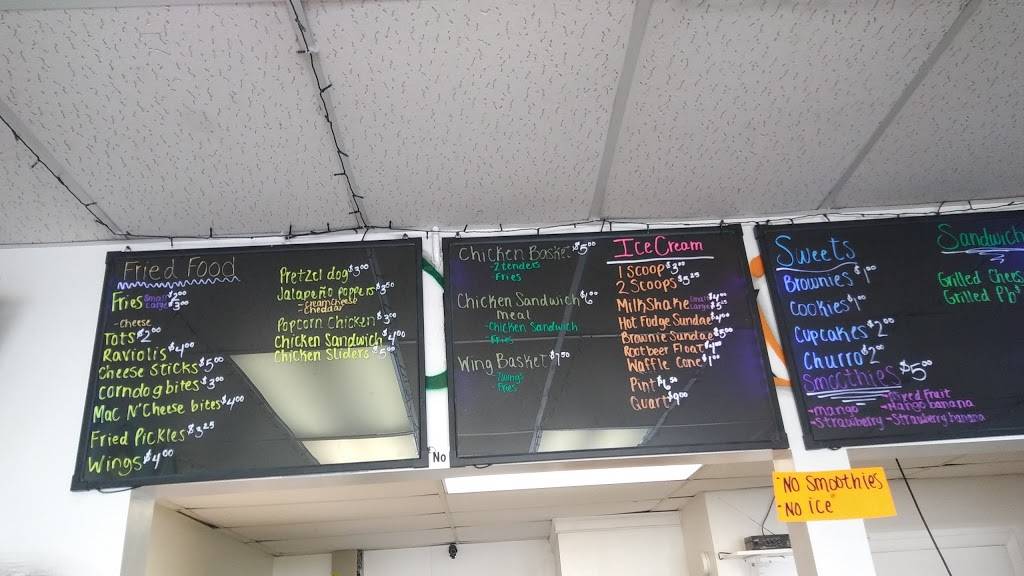 Fried Food
Fries Small $2.00
Large $3.00
-cheese
Tots $2
Raviolis $4.00
Cheese Sticks $5.00
Corndog bites $3.00
Mac N' Cheese bites $4.00
Fried Pickles $3.25
Wings $4.00
Pretzel dog $3.00
Jalapeño Poppers $3.50
-cream cheese
-Cheddar
Popcorn Chicken $3.00
Chicken Sandwich $4.00
Chicken Sliders $5.00
°No
Chicken Basket $5.00
-2 tenders
Fries
Chicken Sandwich $6.00
meal
-Chicken Sandwich
-Fries
Wing Basket
Wings
Fries
Ice Cream
1 Scoop $3.00
2 Scoops $5.25
MilkShake Small $4.00
Large $5.00
Hot Fudge Sundae
Brownie Sundae $5.00
Rootbeer Float
Waffle Cone $1.00
Pint
Quart $9.00
Sweets
Brownies $1.00
Cookies $1.00
Cupcakes $2.00
Churro $2.00
Smoothies $5.00
-mango
-Strawberry
-Mixed Fruit
-Mango banana
-Strawberry banana
Sandwich
Grilled Chees
Grilled
-No Smoothies
-No ice